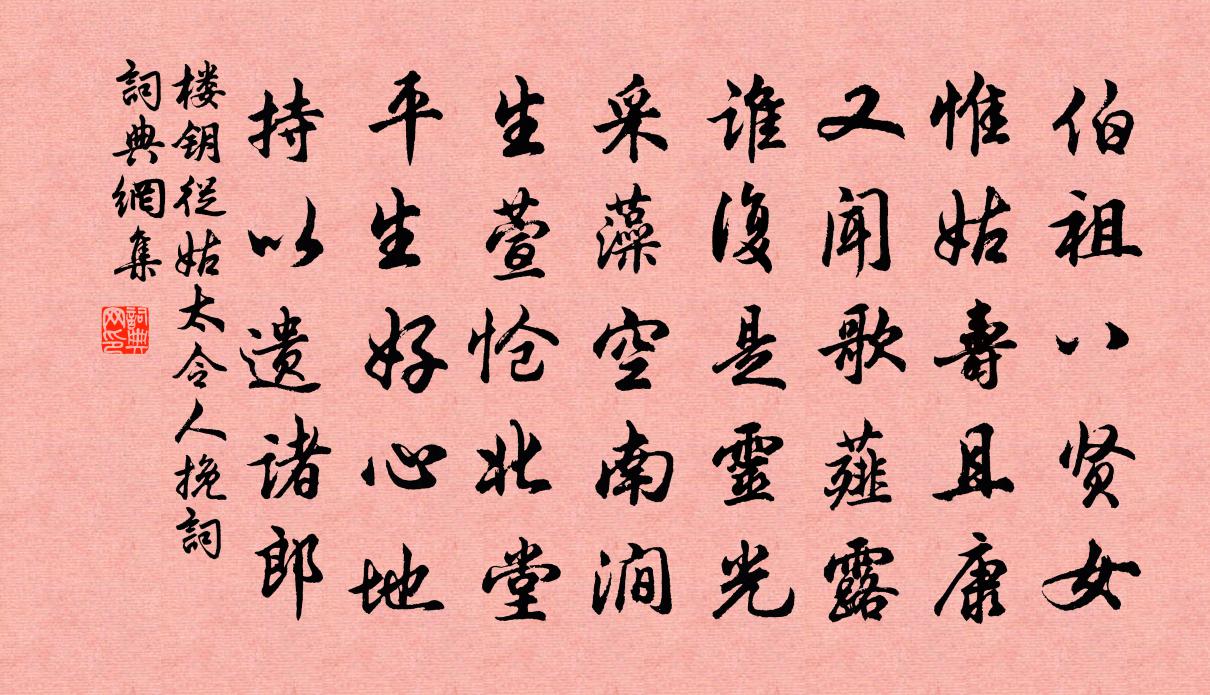 伯祖八贤女
惟姑寿且康
又闻歌薤露
谁复是靈光
采藻空南涧
生萱怆北堂
平生好心地
持以遗诸郎
楼钥從姑太令人挽詞
詞典網集
詞典网印